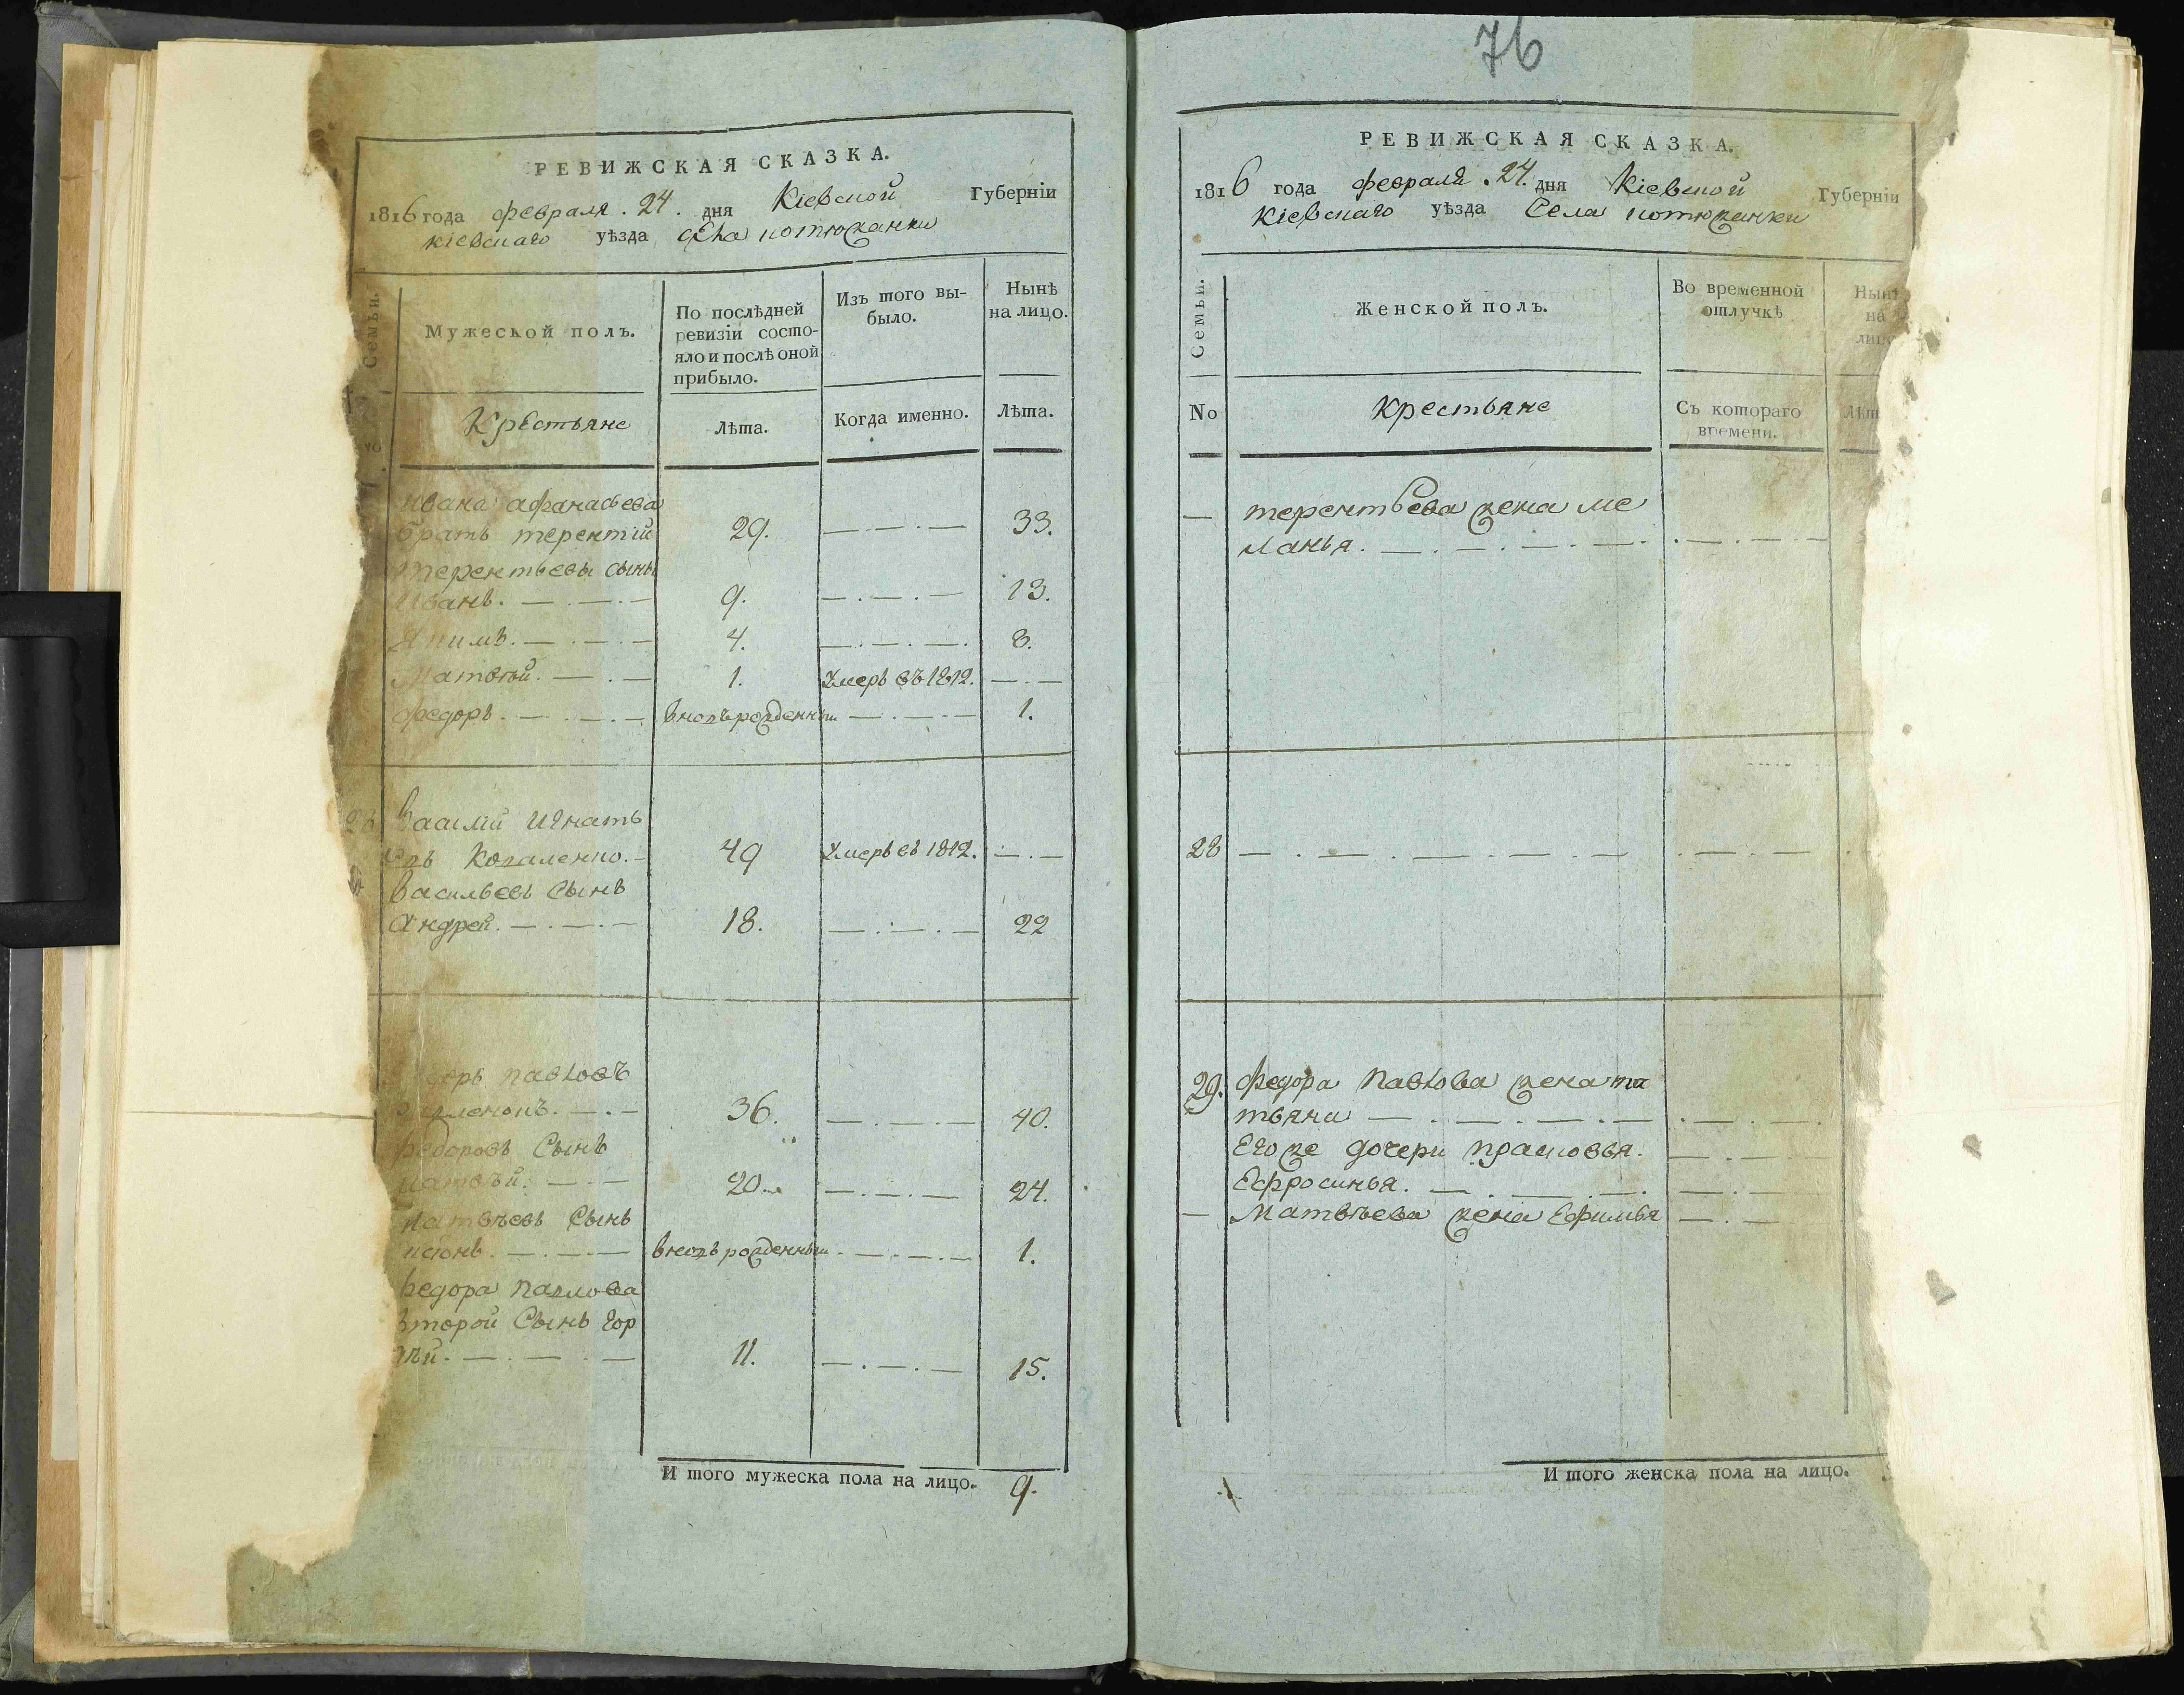 76
РЕВИЖСКАЯ СКАЗКА.
1816 года февраля . 24 . дня Кіевской Губерніи
кіевскаго уѣзда села
Семьи.
Мужеской полъ.
По послѣдней ревизіи состо-
яло и послѣ оной
прибыло.
Изъ того вы-
было.
Нынѣ
на лицо.
Крестьяне
Лѣта.
Когда именно.
Лѣта.
ивана афанасьева
братъ терентій 29. 33.
терентьевы сыны
Иванъ. 9. 13.
4. 8.
Матвѣй. 1. Умеръ въ 1812.
федоръ. вновьрожденный 1.
Василій Игнать
евъ Коваленко. 49 Умеръ въ 1812.
Васильевъ Сынъ
Андрей. 18. 22
павловъ
36. 40.
федоровъ Сынъ
матвѣй. 20. 24.
матвѣевъ Сынъ
вновь рожденный 1.
федора павлова
второй Сынъ гор
ѣй. 11. 15.
И того мужеска пола на лицо. 9.
РЕВИЖСКАЯ СКАЗКА.
1816 года февраля . 24. дня Кіевской Губерніи
Кіевскаго уѣзда Села
Семьи.
Женской полъ.
Во временной
отлучкѣ
Нынѣ
на
лицо
No
крестьяне
Съ котораго
времени.
— терентьева жена ме
ланья.
28
29. федора павлова жена та
тьяна
Его же дочери прасковья.
Ефросинья.
— Матвѣева жена Ефимья
И того женска пола на лицо.